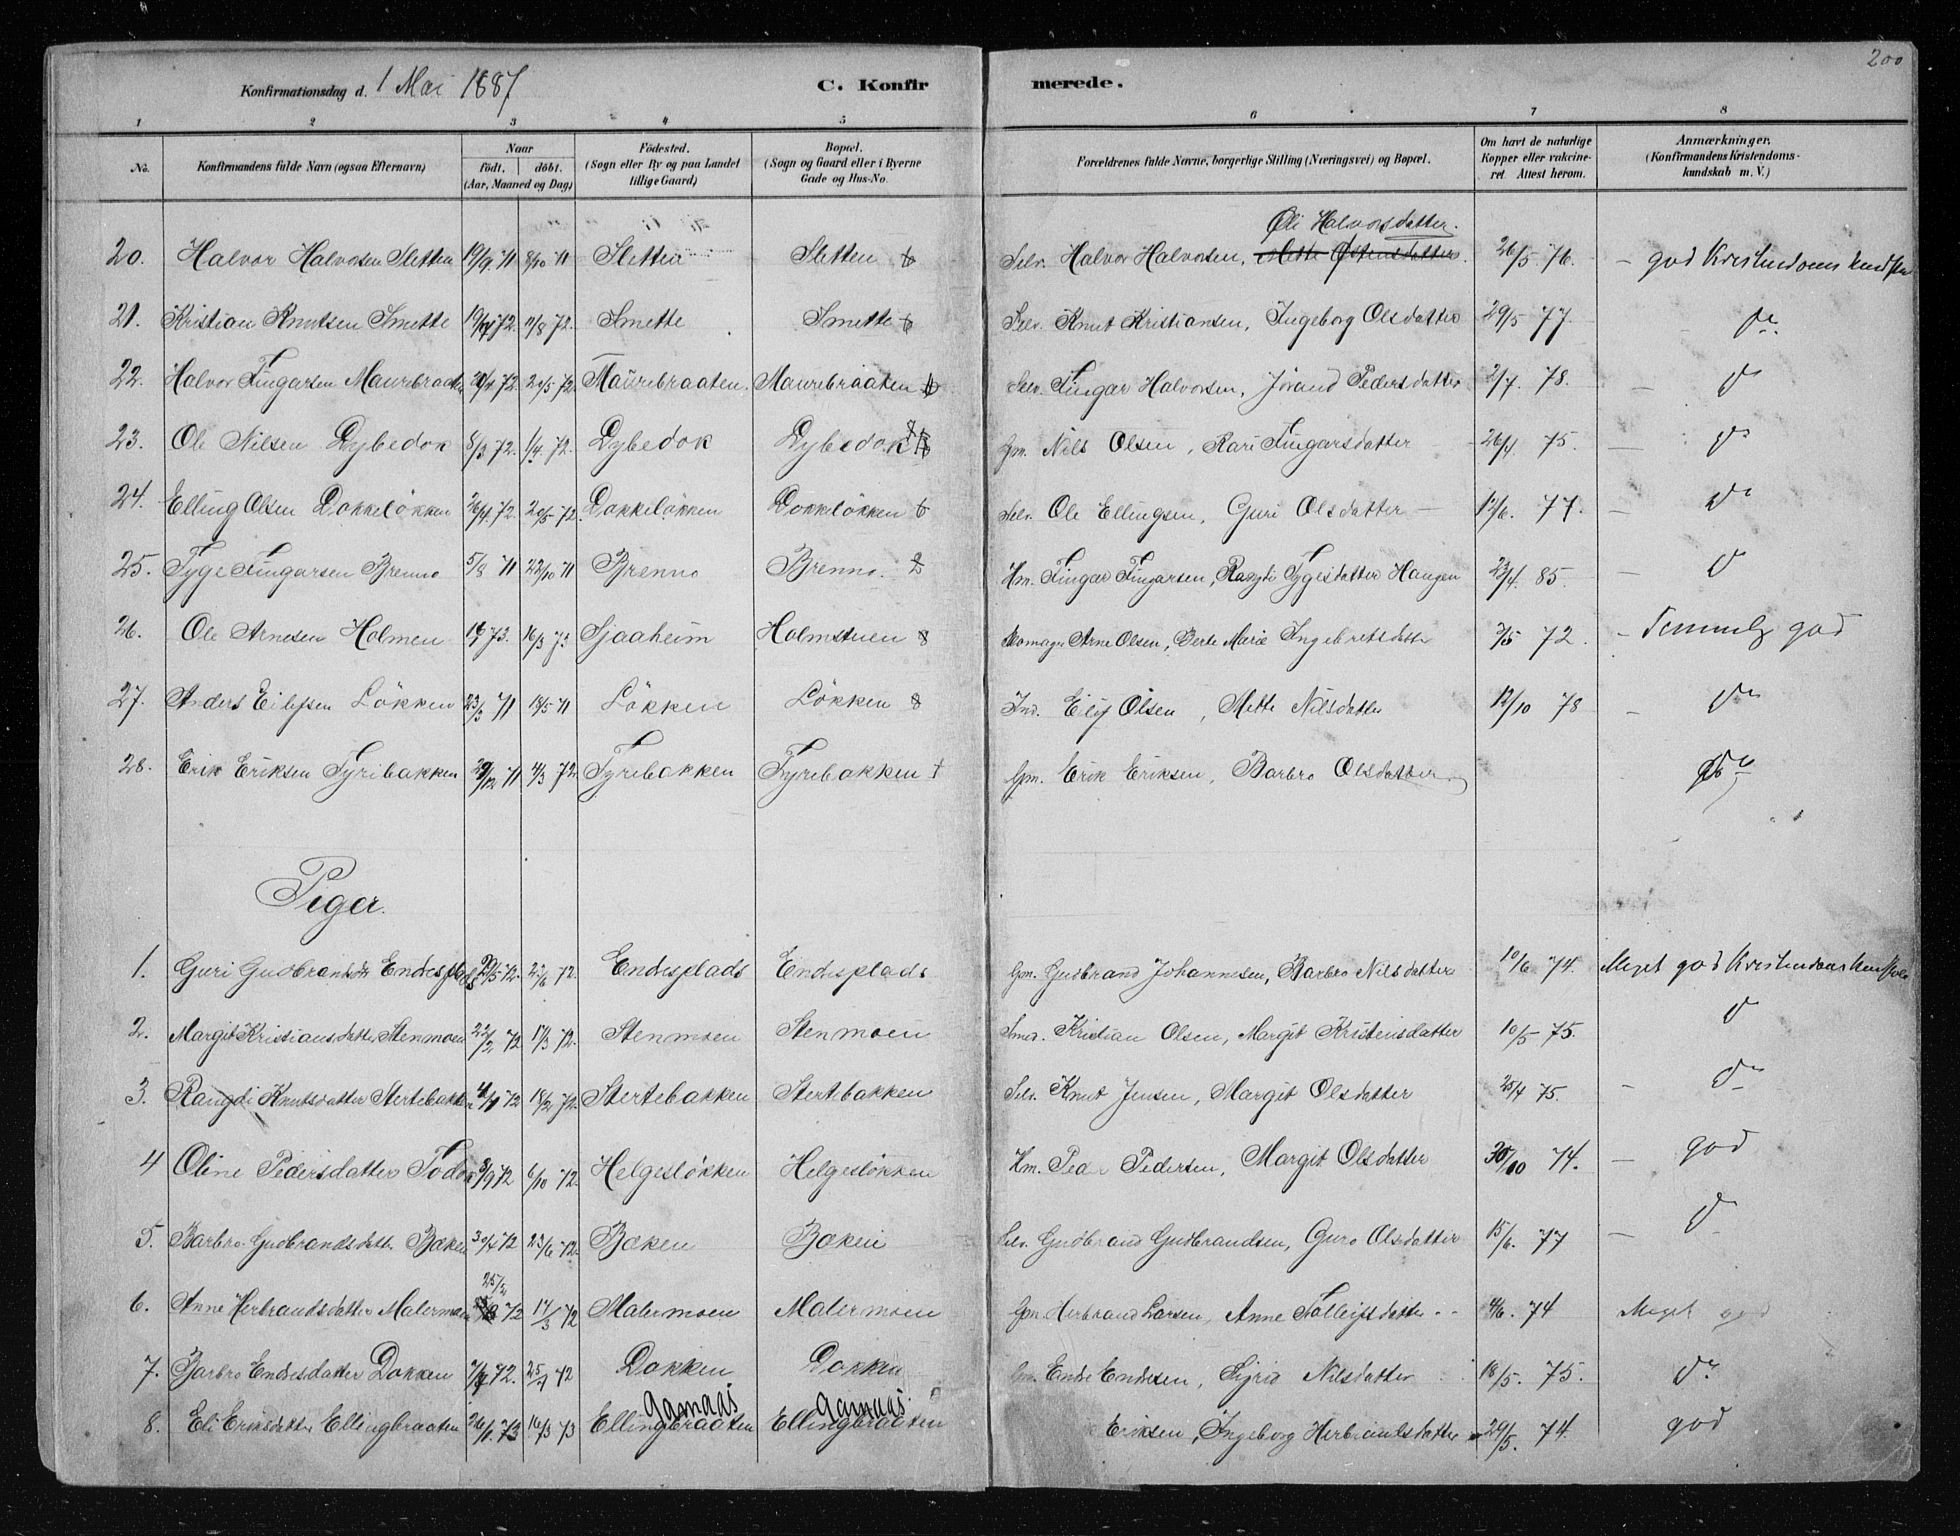 200
Konfirmationsdag d. 1 Mai 1887
C. Konfirmerede.
1 2 3 4 5 6 7 8
No. Konfirmandens fulde Navn (ogsaa Efternavn) Naar födt. döbt. (Aar, Maaned og Dag) Födested. (Sogn eller By og paa Landet tillige Gaard) Bopæl. (Sogn og Gaard eller i Byerne Gade og Hus-No. Forældrenes fulde Navne, borgerlige Stilling (Næringsvei) og Bopæl. Om havt de naturlige Kopper eller vakcineret. Attest herom. Anmærkninger. (Konfirmandens Kristendomskundskab m. V.)
20. Halvor Halvorsen Sletten 19/9 71 8/10 71 Sletten Sletten Selv. Halvor Halvorsen, Mette Østensdatter. Øli Halvorsdatter. 26/5 76. - god Kristendoms
21. Kristian Knutsen Smette 72. 11/8 72. Smette Smette Selv. Knut Kristiansen, Ingeborg Olsdatter 29/5 77
22. Halvor Fingarsen Maurebraaten 72. 20/5 72 Maurebraaten. Maurebraaten Selv. Fingar Halvorsen, Jörand Pedersdatter 2/7. 78.
23. Ole Nilsen Dybedok 8/3 72. 1/4. 72. Dybedok Dybedok Gm. Nils Olsen, Kari Fingarsdatter 26/1 75.
24. Elling Olsen Dokkelökken 26/4 72. 20/5 72. Dokkelökken Dokkelökken Selv. Ole Ellingsen, Guri Olsdatter 12/6. 77.
25. Tyge Fingarsen Brenno 5/8 71 22/10 71 Brenno Brenno. Hm. Fingar Fingarsen, Ragdi Tygesdatter Haugen 23/4. 85.
26. Ole Arnesen Holmen 73. 16/3 73 Sjaaheim Holmstuen Arne Olsen, Berte Marie Ingebretsdatter 7/5 72. - Temmelig god
27. Anders Eilifsen Lökken 23/3 71 18/5 71 Lökken Lökken Ind. Elif Olsen, Mette Nilsdatter 12/10 78
28. Erik Eriksen Tyribakken 29/12 71 4/3 72 Tyribakken Tyribakken Gm. Erik Eriksen, Barbro Olsdatter
Piger.
1. Guri Gudbrandsdtr Endesplads 5 72. 6 72. Endesplads Endesplads Gm. Gudbrand Johannesen, Barbro Nilsdatter 10/6 74. Meget god Kristendoms
2. Margit Kristiansdatter Stenmoen 22/2 72 17/3 72. Stenmoen Stenmoen Smed. Kristian Olsen, Margit Kristensdatter 10/5 75.
3. Rangdi Knutsdatter Stertebakken 72 18/2 72. Stertebakken Stertebakken Selv. Knut Jensen, Margit Olsdatter 25/4 75.
4 Oline Pedersdatter 9 72 6/10 72. Helgeslökken Helgeslökken Hm. Peder Pedersen, Margit Olsdatter 30/10 74. - god
5. Barbro Gudbrandsdatter Bæken 30/4 72 23/6 72. Bæken Bæken Selv. Gudbrand Gudbrandsen, Guro Olsdatter 15/6. 77
6. Anne Herbrandsdatter Malermoen 25/2 72 17/3 72 Malermoen Malermoen Gm. Herbrand Larsen, Anne Tolleifsdatter 4/6. 74 Meget god
7. Barbro Endresdatter Dokken 72. 25/ 72 Dokken Dokken Gm. Endre Endresen, Sigrid Nilsdatter 18/5. 75.
Gamaas Gamaas.
8. Eli Eriksdatter Ellingbraaten 26/1. 73 16/3 73 Ellingbraaten Ellingbraaten Eriksen, Ingeborg Herbrandsdatter 29/5. 74. god